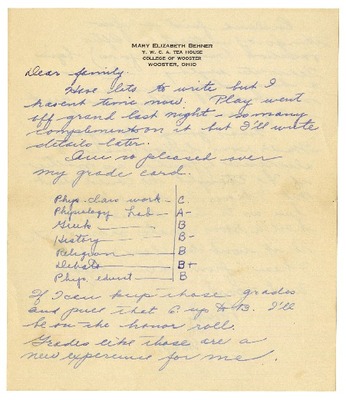 MARY ELIZABETH BEHNER
Y. W. C. A. TEA HOUSE
COLLEGE OF WOOSTER
WOOSTER, OHIO
Dear family.
Have lots to write but I
havent time now. Play went
off grand last night - so many
complements on it but I'll write
details later.
Am so pleased over
my grade card.
Phys. class work - C
Physiology Lab - A-
Greek - B
History - B-
Religion - B
Debate - B+
Phys. educat - B
If I can keep those grades
and pull that C up to B. I'll
be on the honor roll.
Grades like those are a
new experience for me.